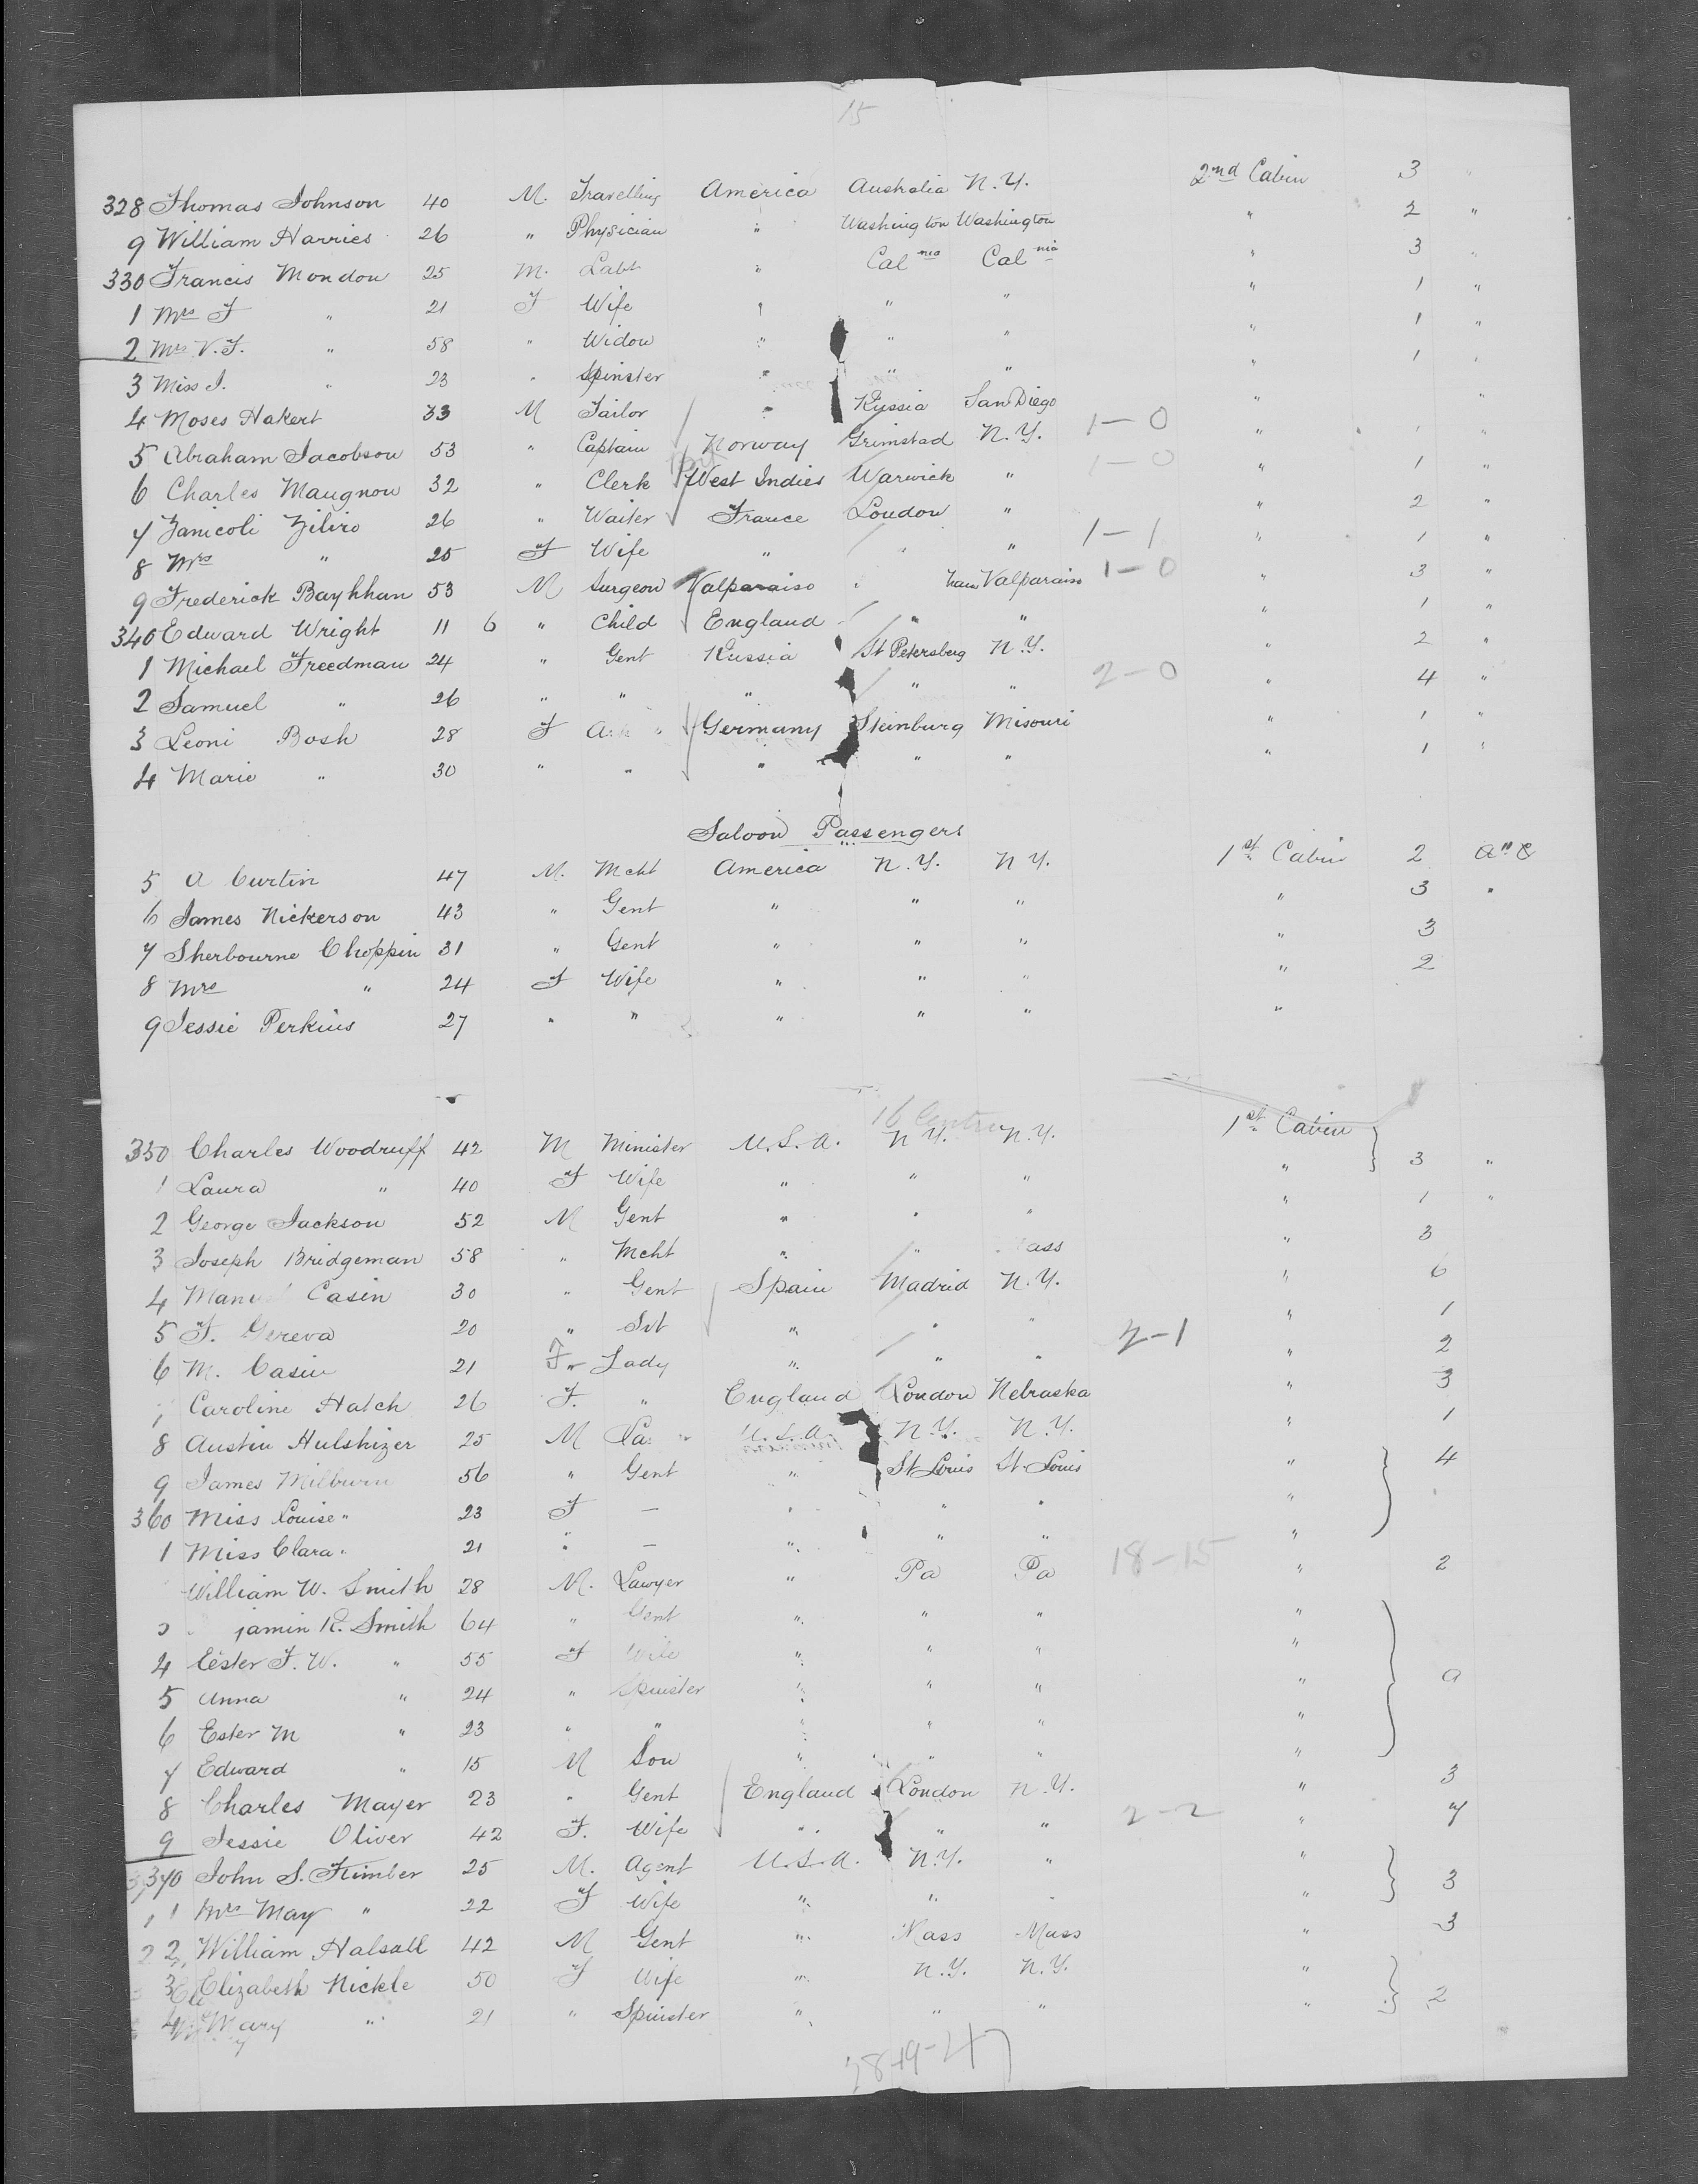 15
328 Thomas Johnson 40 M. Travelling America Australia N.Y. 2nd Cabin 3 "
9 William Harries 26 " Physician " Washington Washington " 2 "
330 Francis Mondou 25 M. Labr " Cal nia Cal nia " 3 "
1 Mrs F " 21 F Wife " " " " 1 "
2 Mrs V. F. " 58 " Widow " " " " 1 "
3 Miss I. " 23 " Spinster " " " " 1 "
4 Moses Hakert 33 M Tailor " Russia San Diego " "
5 Abraham Jacobson 53 " Captain Norway Grimstad N.Y. 1-0 " 1 "
6 Charles Maugnou 32 " Clerk West Indies Warwick " 1-0 " 1 "
7 Zanicoli Ziliro 26 " Waiter France London " " 2 "
8 Mrs " 25 F Wife " " " 1-1 " 1 "
9 Frederick Bayhhan 53 M Surgeon Valparaiso " Valparaiso 1-0 " 3 "
340 Edward Wright 11 6 " Child England " " " 1 "
1 Michael Freedman 24 " Gent Russia St Petersberg N.Y. " 2 "
2 Samuel " 26 " " " " " 2-0 " 4 "
3 Leoni Bosh 28 F Germany Steinburg Misouri " 1 "
4 Marie " 30 " " " " " " 1 "
Saloon Passengers
5 A Curtin 47 M. Mcht America N.Y. N.Y. 1st Cabin 2
6 James Nickerson 43 " Gent " " " " 3 "
7 Sherbourne Choppin 31 " Gent " " " " 3
8 Mrs " 24 F Wife " " " " 2
9 Jessie Perkins 27 " " " " " "
16
350 Charles Woodruff 42 M Minister U.S.A. N.Y. N.Y. 1st Cabin
1 Laura " 40 F Wife " " " " 3 "
2 George Jackson 52 M Gent " " " " 1 "
3 Joseph Bridgeman 58 " Mcht " " ass " 3
4 Casin 30 " Gent Spain Madrid N.Y. " 6
5 F. Gereva 20 " Svt " " " " 1
6 M. Casin 21 F Lady " " " 2-1 " 2
Caroline Hatch 26 F. " England London Nebraska " 3
8 Austin Hulshizer 25 M U.S.A. N.Y. N.Y. " 1
9 James Milburn 56 " Gent " St Louis St Louis " 4
360 Miss Louise " 23 F — " " " "
1 Miss Clara " 21 " — " " " "
William W. Smith 28 M. Lawyer " Pa Pa 18-15 " 2
jamin R. Smith 64 " Gent " " " "
4 Ester F. W. " 55 F Wife " " " "
5 Anna " 24 " Spinster " " " " a
6 Ester M " 23 " " " " " "
7 Edward " 15 M Son " " " "
8 Charles Mayer 23 " Gent England London N.Y. " 3
9 Jessie Oliver 42 F. Wife " " " 2-2 " 7
370 John S. Fimber 25 M. Agent U.S.A. N.Y. " "
1 Mrs May " 22 F Wife " " " " 3
2 William Halsall 42 M Gent " Mass Mass " 3
3 Elizabeth Nickle 50 F Wife " N.Y. N.Y. "
4 Mary " 21 " Spinster " " " " 2